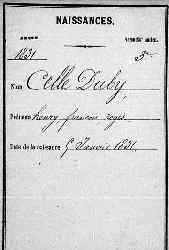 NAISSANCES.
ANNÉE
1831
5e
NOM Celle Duby,
Prénoms henry francois regis
Date de la naissance 5 Janvier 1831.